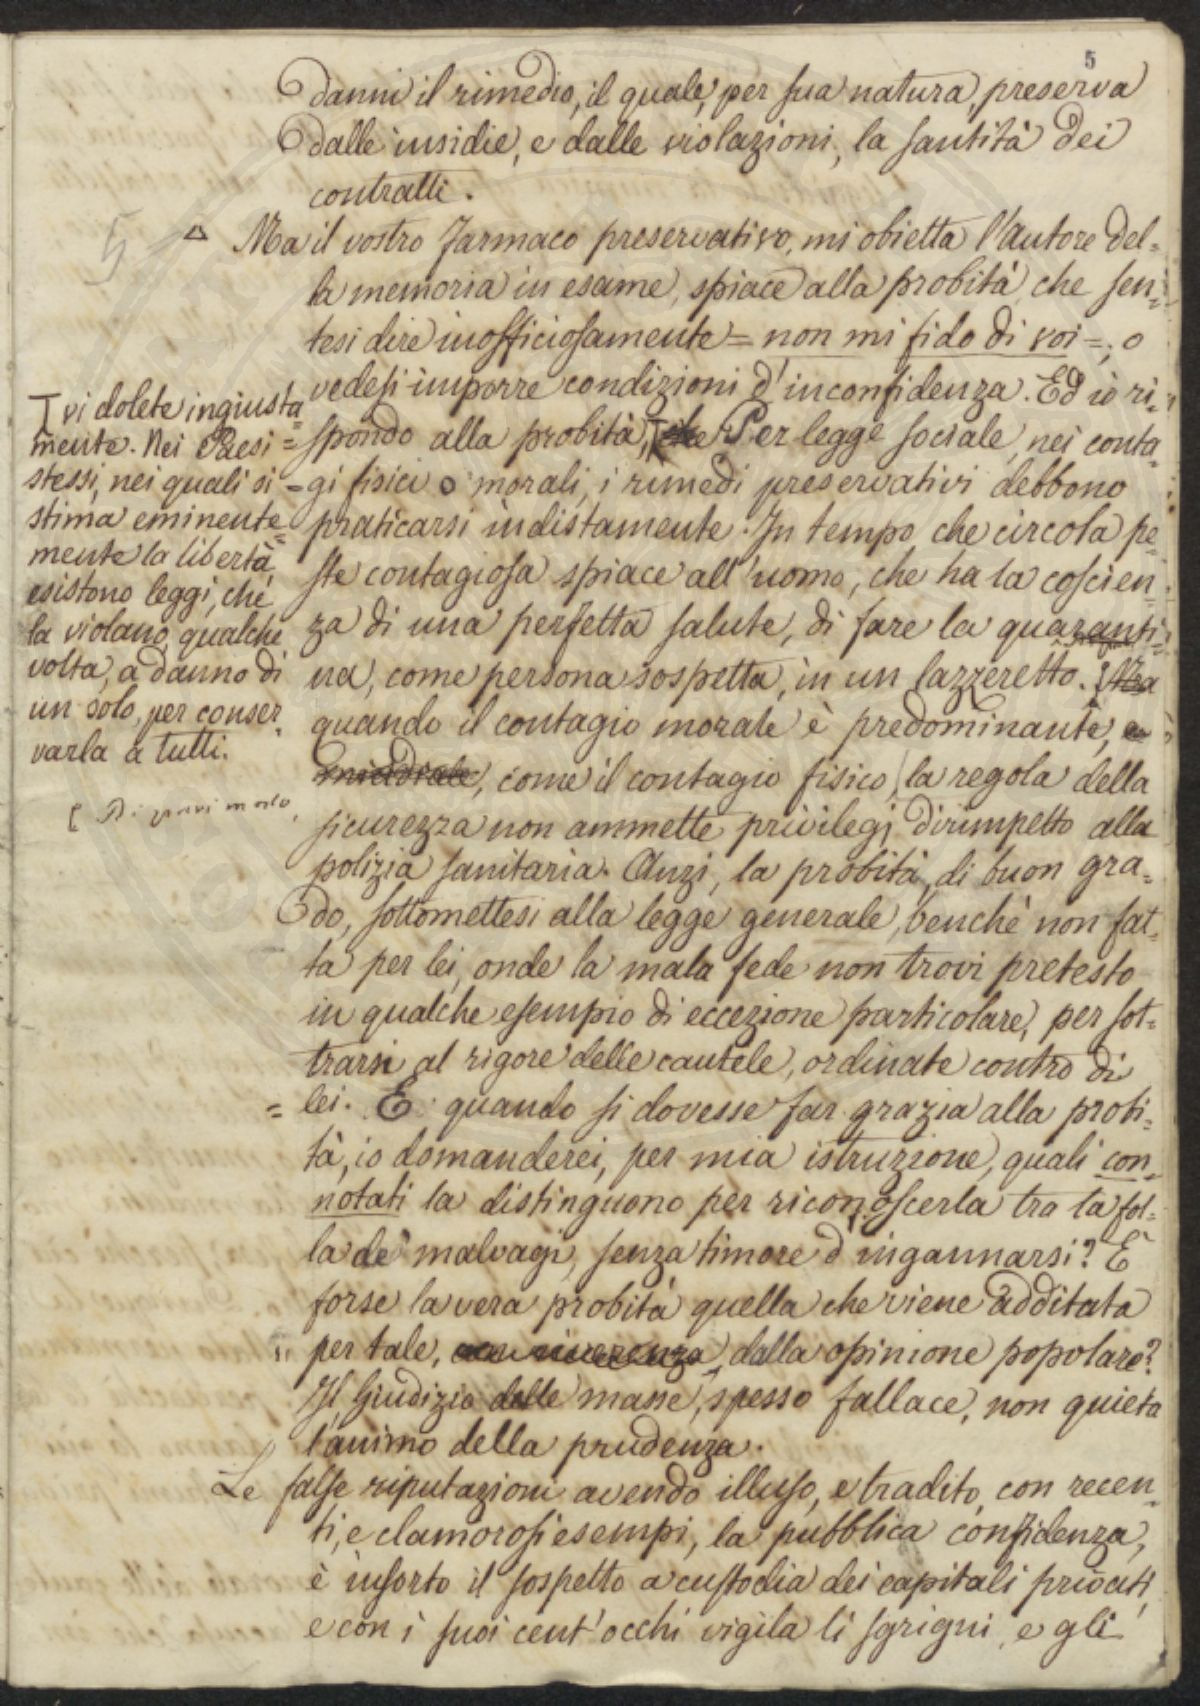 5
danni il rimedio, il quale, per sua natura, preserva
dalle insidie, e dalle violazioni, la santità dei
contratti.
5
Ma il vostro farmaco preservativo, mi obietta l'autore del=
la memoria in esame, spiace alla probità, che sen=
tesi dire inofficiosamente = non mi fido di voi =, o
vedesi imporre condizioni d'inconfidenza. Ed io ri=
spondo alla probità, Per legge sociale, nei conta=
gi fisici o morali, i rimedi preservativi debbono
praticarsi indistamente. In tempo che circola pe=
ste contagiosa spiace all'uomo, che ha la coscien=
za di una perfetta salute, di fare la quaranti=
na, come persona sospetta, in un lazzeretto.
quando il contagio morale è predominante,
micidiale, come il contagio fisico, la regola della
sicurezza non ammette privilegi, dirimpetto alla
polizia sanitaria. Anzi, la probità, di buon gra=
do, sottomettesi alla legge generale, benchè non fat=
ta per lei, onde la mala fede non trovi pretesto
in qualche esempio di eccezione particolare, per sot=
trarsi al rigore delle cautele, ordinate contro di
= lei. E quando si dovesse far grazia alla probi=
tà, io domanderei, per mia istruzione, quali con=
notati la distinguono per riconoscerla tra la fol=
la de' malvagi, senza timore d'ingannarsi? È
forse la vera probità quella che viene additata
per tale, dalla opinione popolare?
Il Giudizio delle masse, spesso fallace, non quieta
l'animo della prudenza.
Le false riputazioni avendo illuso, e tradito, con recen=
ti, e clamorosi esempi, la pubblica confidenza,
è insorto il sospetto a custodia dei capitali privati,
e con i suoi cent'occhi vigila li sgrigni, e gli
vi dolete ingiusta
mente. Nei Paesi =
stessi, nei quali si =
stima eminente=
mente la libertà,
esistono leggi, che
la violano, qualche
volta, a danno di
un solo, per conser=
varla a tutti.